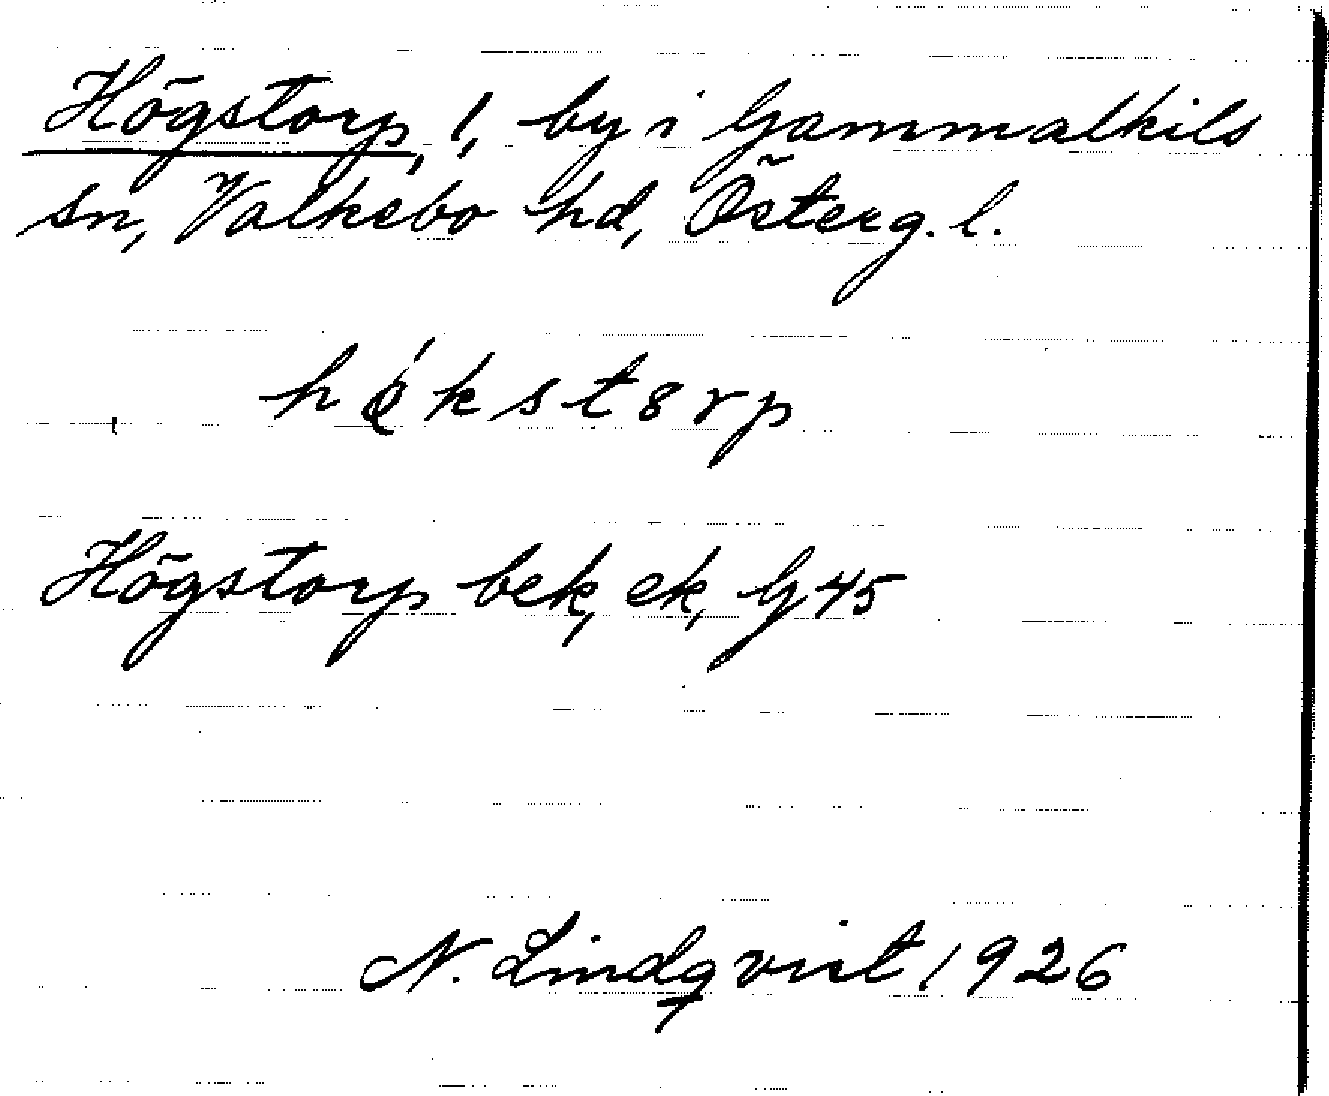 Högstorp, 1, by i Gammalkils
sn, Valkebo hd, Österg. l.
hǿkstorp
Högstorp bek, ek, G 45
N. Lindqvist 1926